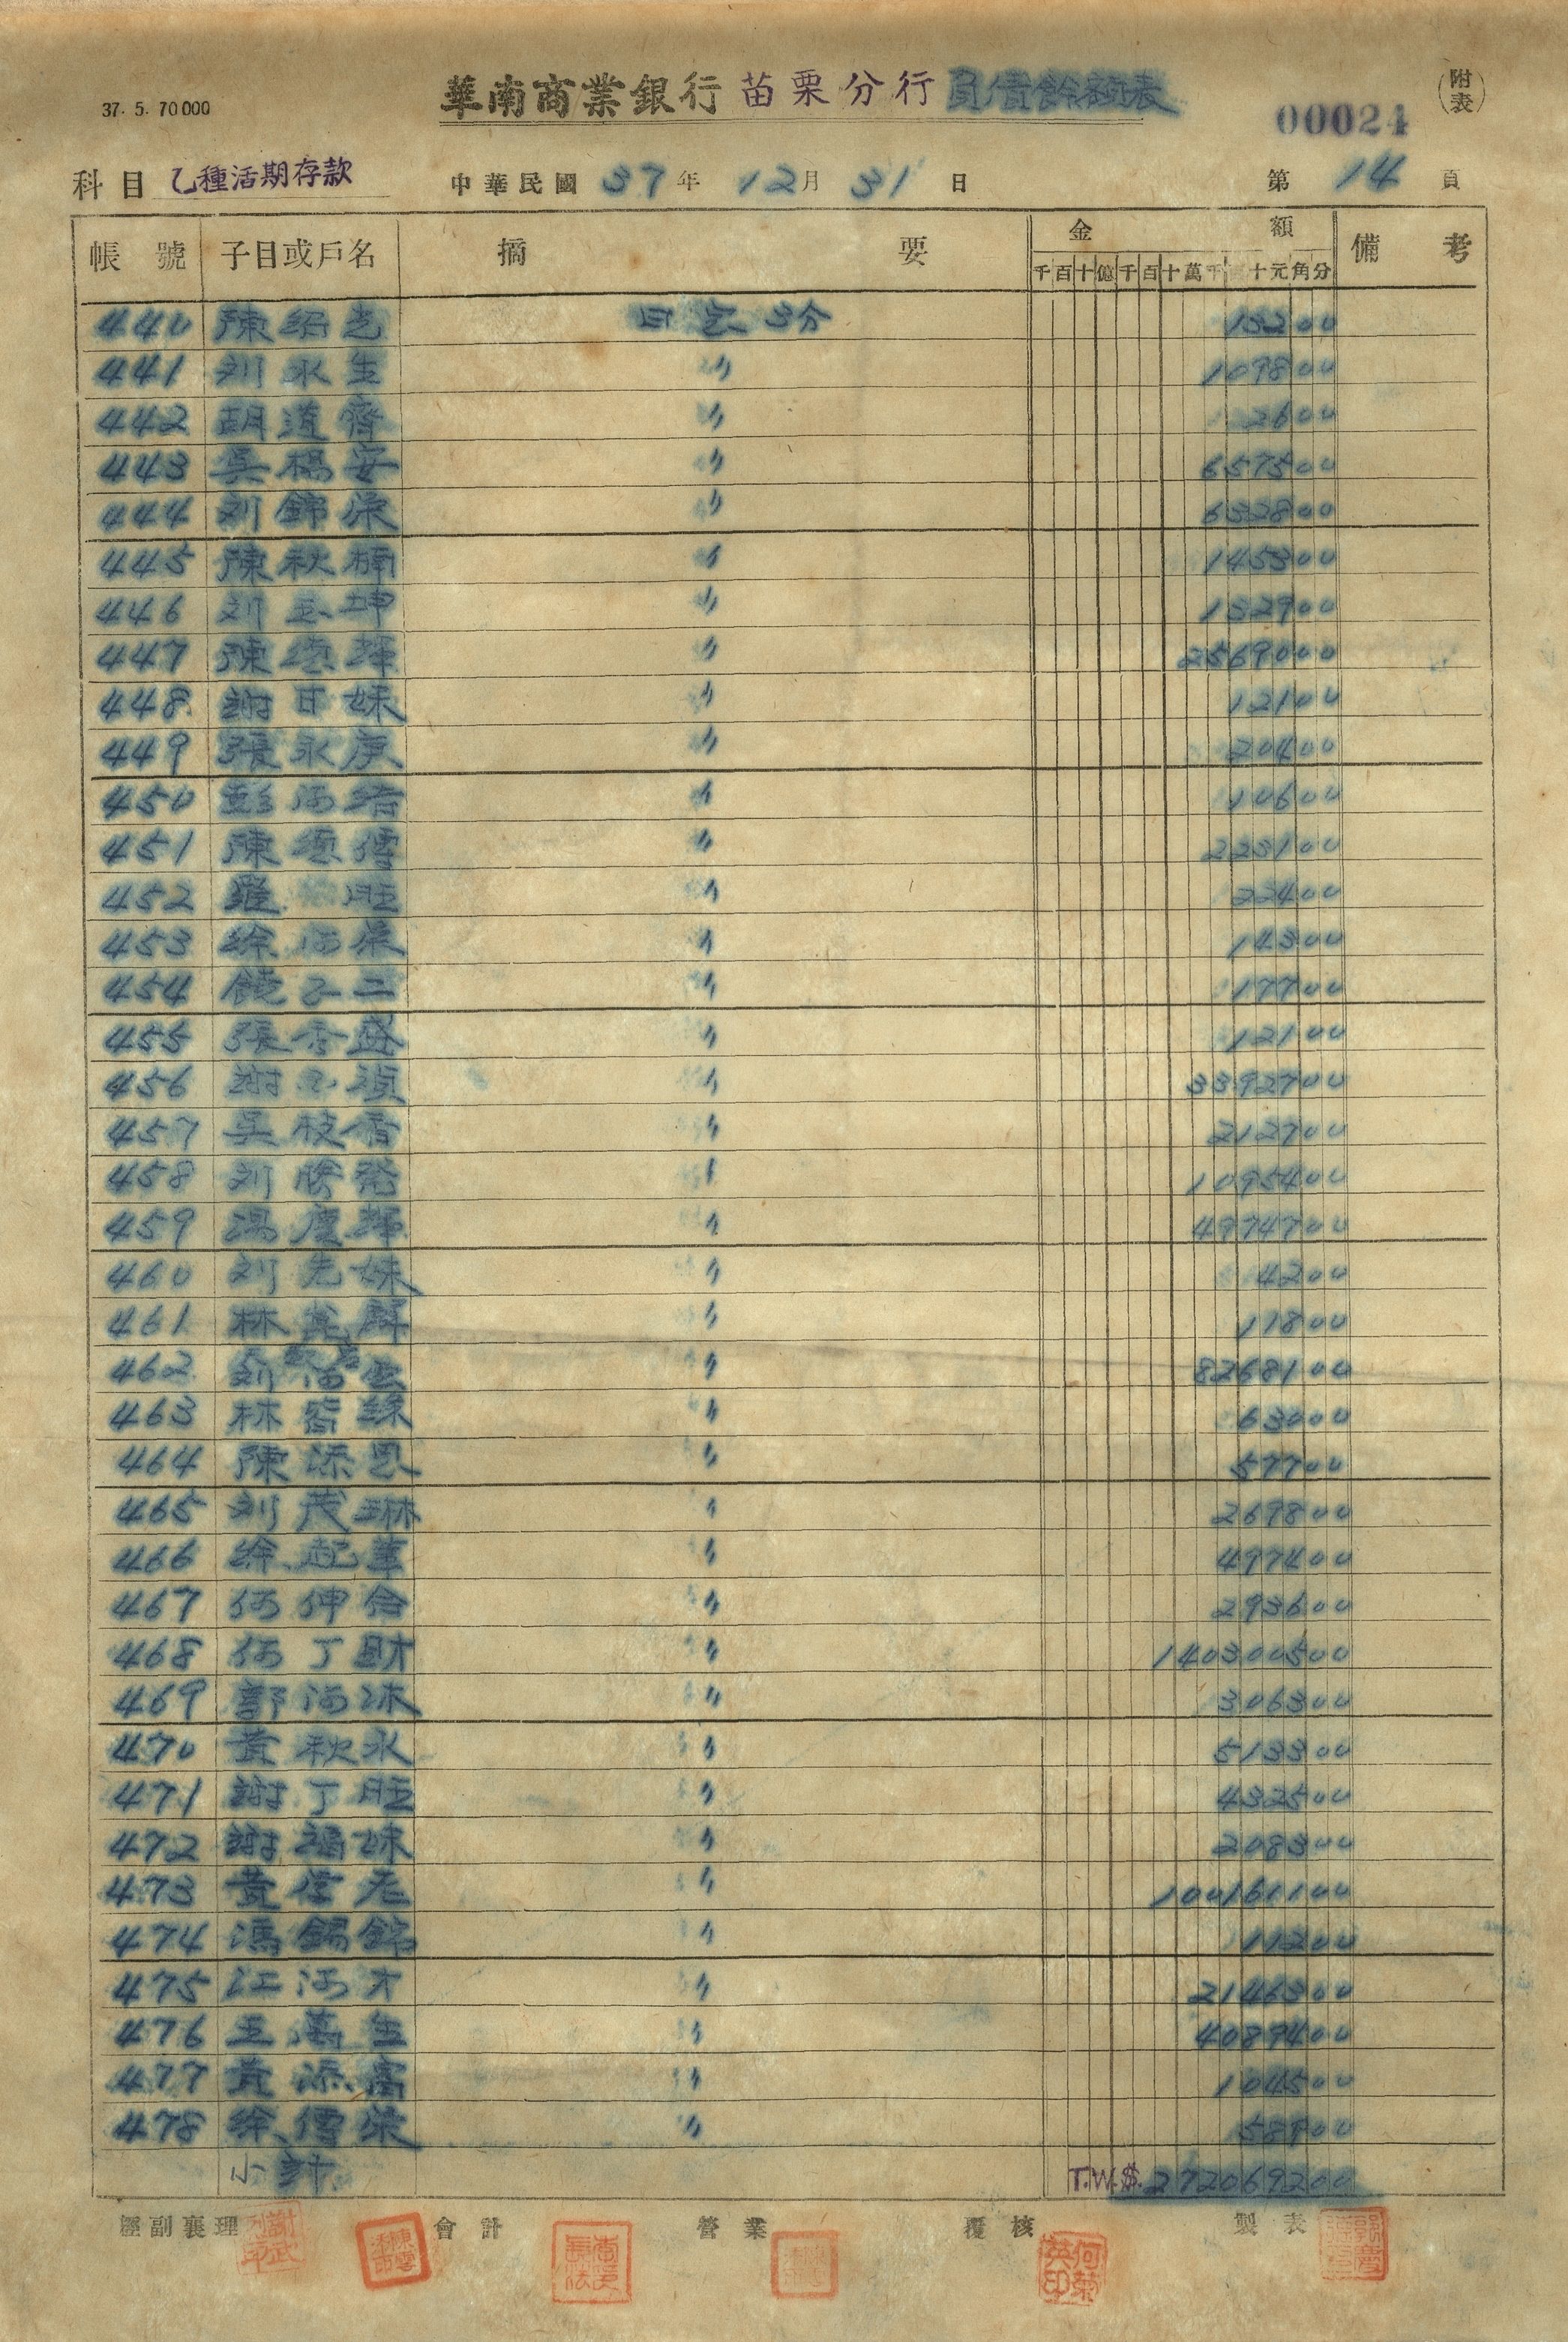 37. 5. 70000
華南商業銀行 苗栗分行 負債餘額表
(附表)
00024
科目 乙種活期存款 中華民國 37 年 12 月 31 日 第 14 頁
帳號 子目或戶名 摘要 金額 備考
千百十億千百十萬千百十元角分
440 陳紹光 日宏 3分 13200
441 刘水生 〃 109800
442 胡蓮齊 〃 2600
443 吳楊安 〃 657500
444 刘錦深 〃 632800
445 陳秋楠 〃 145300
446 刘玉坤 〃 132900
447 陳德輝 〃 2569000
448 謝日妹 〃 12100
449 張永庚 〃 20400
450 彭河緒 〃 10600
451 陳德傳 〃 223100
452 羅 旺 〃 22400
453 徐河泉 〃 14300
454 饒子二 〃 17700
455 張香盛 〃 12100
456 謝 禎 〃 3392700
457 吳枝香 〃 212700
458 刘勝發 〃 1095400
459 湯慶輝 〃 4974700
460 刘先妹 〃 4200
461 林 麟 〃 11800
462 刘河 〃 8268100
463 林 〃 63000
464 陳添恩 〃 57700
465 刘茂琳 〃 269800
466 徐起華 〃 497400
467 何伸合 〃 293600
468 何丁財 〃 140300500
469 郭河妹 〃 306300
470 黃秋永 〃 513300
471 謝丁旺 〃 432500
472 謝福妹 〃 208300
473 黃 〃 100161100
474 馮錫錦 〃 11200
475 江河才 〃 2146300
476 王萬生 〃 4089400
477 黃添富 〃 104500
478 徐傳深 〃 58900
小計 T.W.$. 272069200
經副襄理 會計 營業 覆核 製表
何榮英印